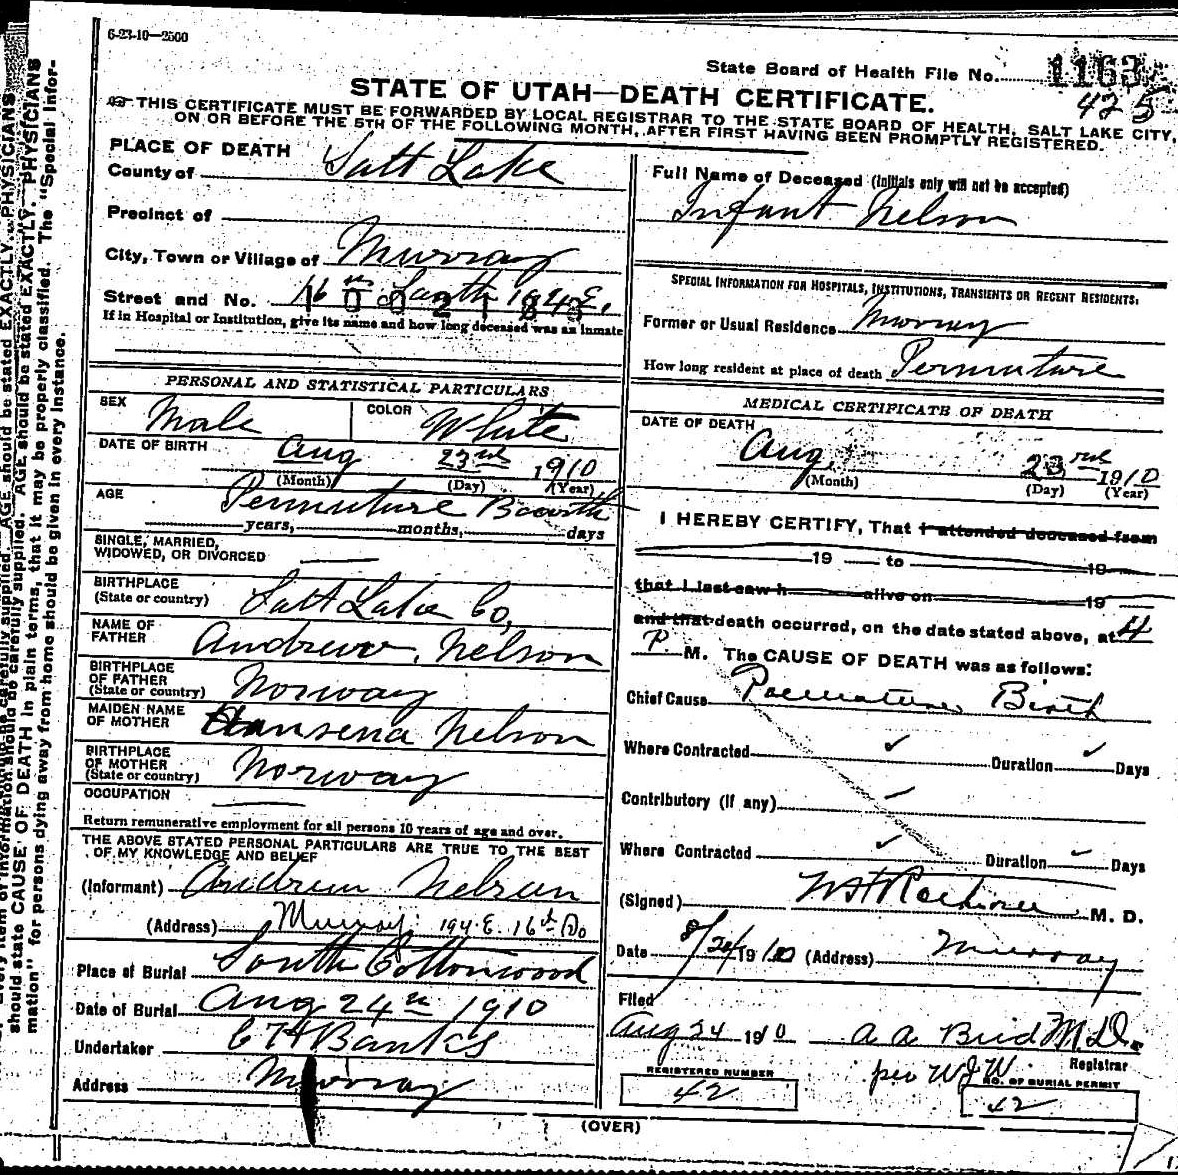 6-23-10—2500
State Board of Health File No. 1163
425
STATE OF UTAH—DEATH CERTIFICATE.
THIS CERTIFICATE MUST BE FORWARDED BY LOCAL REGISTRAR TO THE STATE BOARD OF HEALTH, SALT LAKE CITY,
ON OR BEFORE THE 5TH OF THE FOLLOWING MONTH, AFTER FIRST HAVING BEEN PROMPTLY REGISTERED.
PLACE OF DEATH
County of Salt Lake
Precinct of
City, Town or Village of Murray
Street and No. 16th South 194 E.
If in Hospital or Institution, give its name and how long deceased was an inmate
PERSONAL AND STATISTICAL PARTICULARS
SEX Male COLOR White
DATE OF BIRTH Aug 23rd 1910
(Month) (Day) (Year)
AGE Permuture Bearth
years, months, days
SINGLE, MARRIED,
WIDOWED, OR DIVORCED
BIRTHPLACE
(State or country) Salt Lake Co,
NAME OF
FATHER Andrew Nelson
BIRTHPLACE
OF FATHER
(State or country) Norway
MAIDEN NAME
OF MOTHER Hansena Nelson
BIRTHPLACE
OF MOTHER
(State or country) Norway
OCCUPATION
Return remunerative employment for all persons 10 years of age and over.
THE ABOVE STATED PERSONAL PARTICULARS ARE TRUE TO THE BEST
OF MY KNOWLEDGE AND BELIEF
(Informant) Andrew Nelson
(Address) Murray 194 E. 16th So
Place of Burial South Cottonwood
Date of Burial Aug 24th 1910
Undertaker Banks
Address Murray
Full Name of Deceased (Initials only will not be accepted)
Infant Nelson
SPECIAL INFORMATION FOR HOSPITALS, INSTITUTIONS, TRANSIENTS OR RECENT RESIDENTS:
Former or Usual Residence Murray
How long resident at place of death Permuture
MEDICAL CERTIFICATE OF DEATH
DATE OF DEATH
Aug. 23rd 1910
(Month) (Day) (Year)
I HEREBY CERTIFY, That I attended deceased from
19 to 19
that I last saw h alive on 19
and that death occurred, on the date stated above, at 4
P. M. The CAUSE OF DEATH was as follows:
Chief Cause Premature Birth
Where Contracted Duration Days
Contributory (if any)
Where Contracted Duration Days
(Signed) M. D.
Date 1910 (Address) Murray
Filed
Aug 24 1910 A A Bird M.D.
Registrar
per WJW
REGISTERED NUMBER
42
NO. OF BURIAL PERMIT
42
(OVER)
should be carefully supplied. AGE should be stated EXACTLY. PHYSICIANS
should state CAUSE OF DEATH in plain terms, that it may be properly classified. The "Special Infor-
mation" for persons dying away from home should be given in every instance.